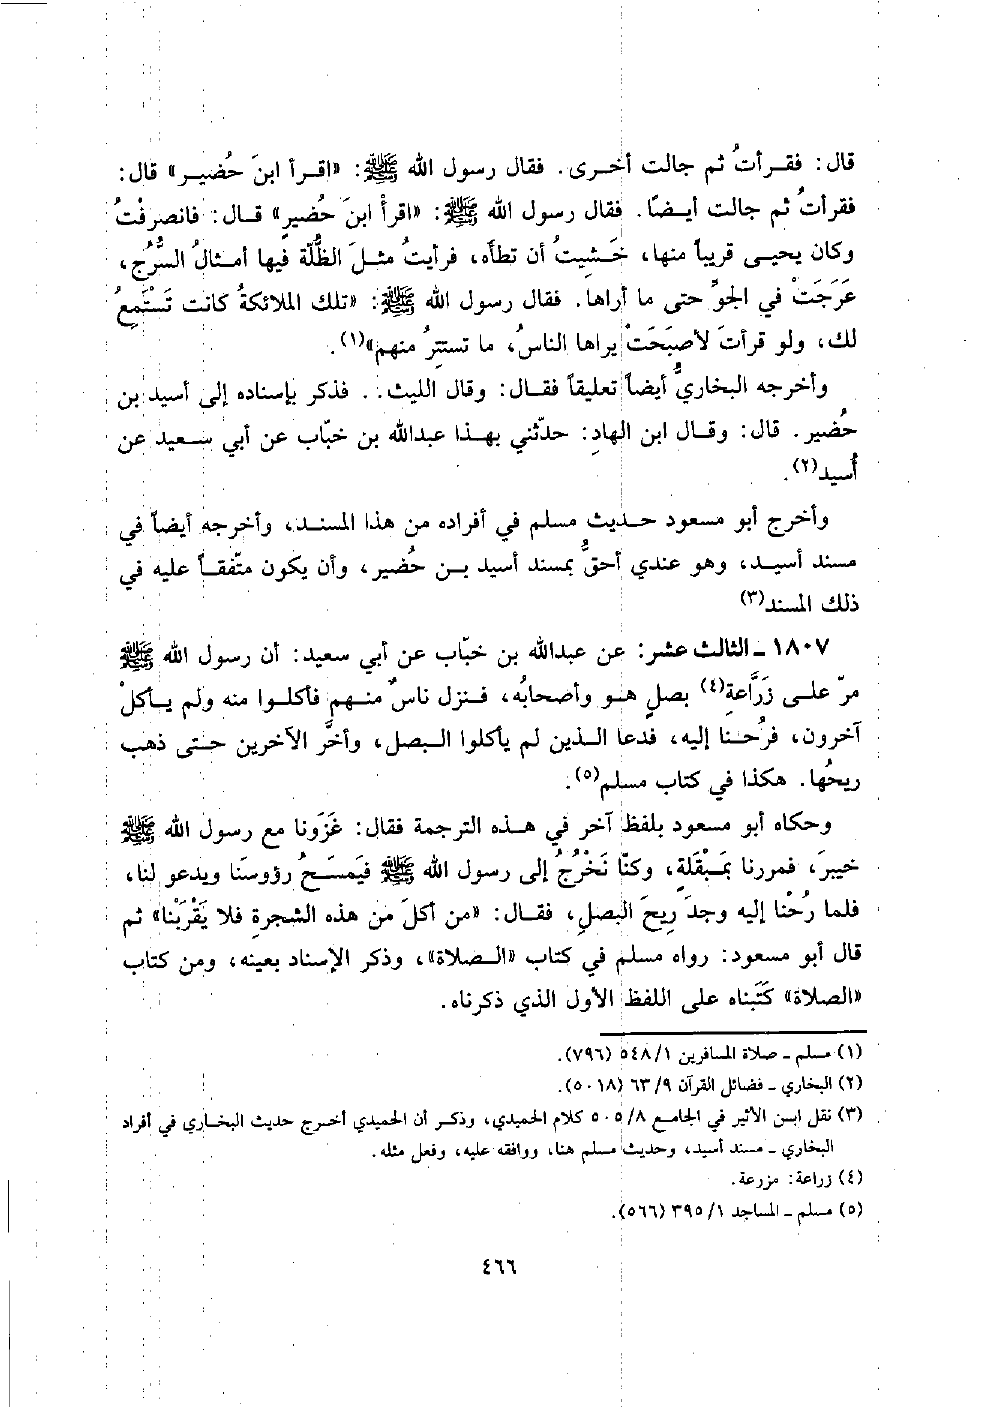 قال: فقرأتُ ثم جالت أخرى. فقال رسول الله ﷺ: «اقرأ ابنَ حُضير» قال:
فقرأتُ ثم جالت أيضاً. فقال رسول الله ﷺ: «اقرأْ ابنَ حُضيرٍ» قال: فانصرفْتُ
وكان يحيى قريباً منها، خَشيتُ أن تطأه، فرأيتُ مثلَ الظُّلّة فيها أمثالُ السُّرُج،
عَرَجَتْ في الجوِّ حتى ما أراها. فقال رسول الله ﷺ: «تلك الملائكةُ كانت تَسْتَمِعُ
لك، ولو قرأتَ لأصبَحَتْ يراها الناسُ، ما تستترُ منهم»(١).
وأخرجه البخاريُّ أيضاً تعليقاً فقال: وقال الليث.. فذكر بإسناده إلى أسيد بن
حُضير. قال: وقال ابن الهادِ: حدّثني بهذا عبدالله بن خبّاب عن أبي سعيد عن
أُسيد(٢).
وأخرج أبو مسعود حديث مسلم في أفراده من هذا المسند، وأخرجه أيضاً في
مسند أسيد، وهو عندي أحقُّ بمسند أسيد بن حُضير، وأن يكون متّفقاً عليه في
ذلك المسند(٣)
١٨٠٧ ـ الثالث عشر: عن عبدالله بن خبّاب عن أبي سعيد: أن رسول الله ﷺ
مرّ على زَرَّاعةِ(٤) بصلٍ هو وأصحابُه، فنزل ناسٌ منهم فأكلوا منه ولم يأكلْ
آخرون، فرُحنا إليه، فدعا الذين لم يأكلوا البصل، وأخَّر الآخرين حتى ذهب
ريحُها. هكذا في كتاب مسلم(٥).
وحكاه أبو مسعود بلفظ آخر في هذه الترجمة فقال: غَزَونا مع رسول الله ﷺ
خيبرَ، فمررنا بمَبْقَلةٍ، وكنّا نَخْرُجُ إلى رسول الله ﷺ فيَمسَحُ رؤوسَنا ويدعو لنا،
فلما رُحْنا إليه وجدَ رِيحَ البصلِ، فقال: «من أكلَ من هذه الشجرةِ فلا يَقْرَبْنا» ثم
قال أبو مسعود: رواه مسلم في كتاب «الصلاة»، وذكر الإسناد بعينه، ومن كتاب
«الصلاة» كَتَبناه على اللفظ الأول الذي ذكرناه.
(١) مسلم ـ صلاة المسافرين ٥٤٨/١ (٧٩٦).
(٢) البخاري ـ فضائل القرآن ٦٣/٩ (٥٠١٨).
(٣) نقل ابن الأثير في الجامع ٥٠٥/٨ كلام الحميدي، وذكر أن الحميدي أخرج حديث البخاري في أفراد
البخاري ـ مسند أسيد، وحديث مسلم هنا، ووافقه عليه، وفعل مثله.
(٤) زراعة: مزرعة.
(٥) مسلم ـ المساجد ٣٩٥/١ (٥٦٦).
٤٦٦